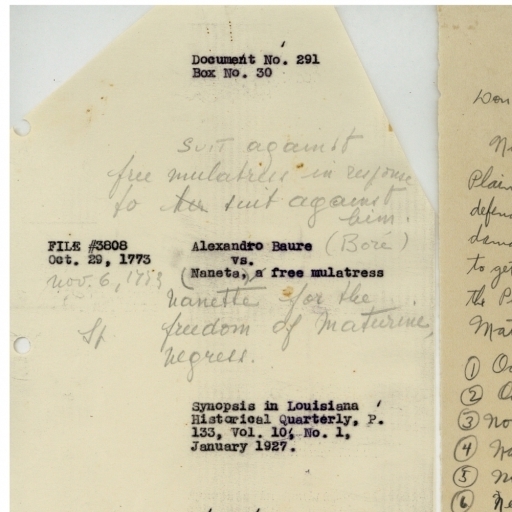 Document No. 291
Box No. 30
suit against
free mulatress in response
to her suit against
him.
FILE #3808
Oct. 29, 1773
Nov. 6, 1773
Sp
Alexandro Baure (Boré)
vs.
(Nanete,) a free mulatress
Nanette for the
freedom of Maturine,
negress.
Synopsis in Louisiana
Historical Quarterly, P.
133, Vol. 10, No. 1,
January 1927.
Plain
defen
dama
to get
the P
Mat
①
②
③ No
④
⑤
⑥ Ne